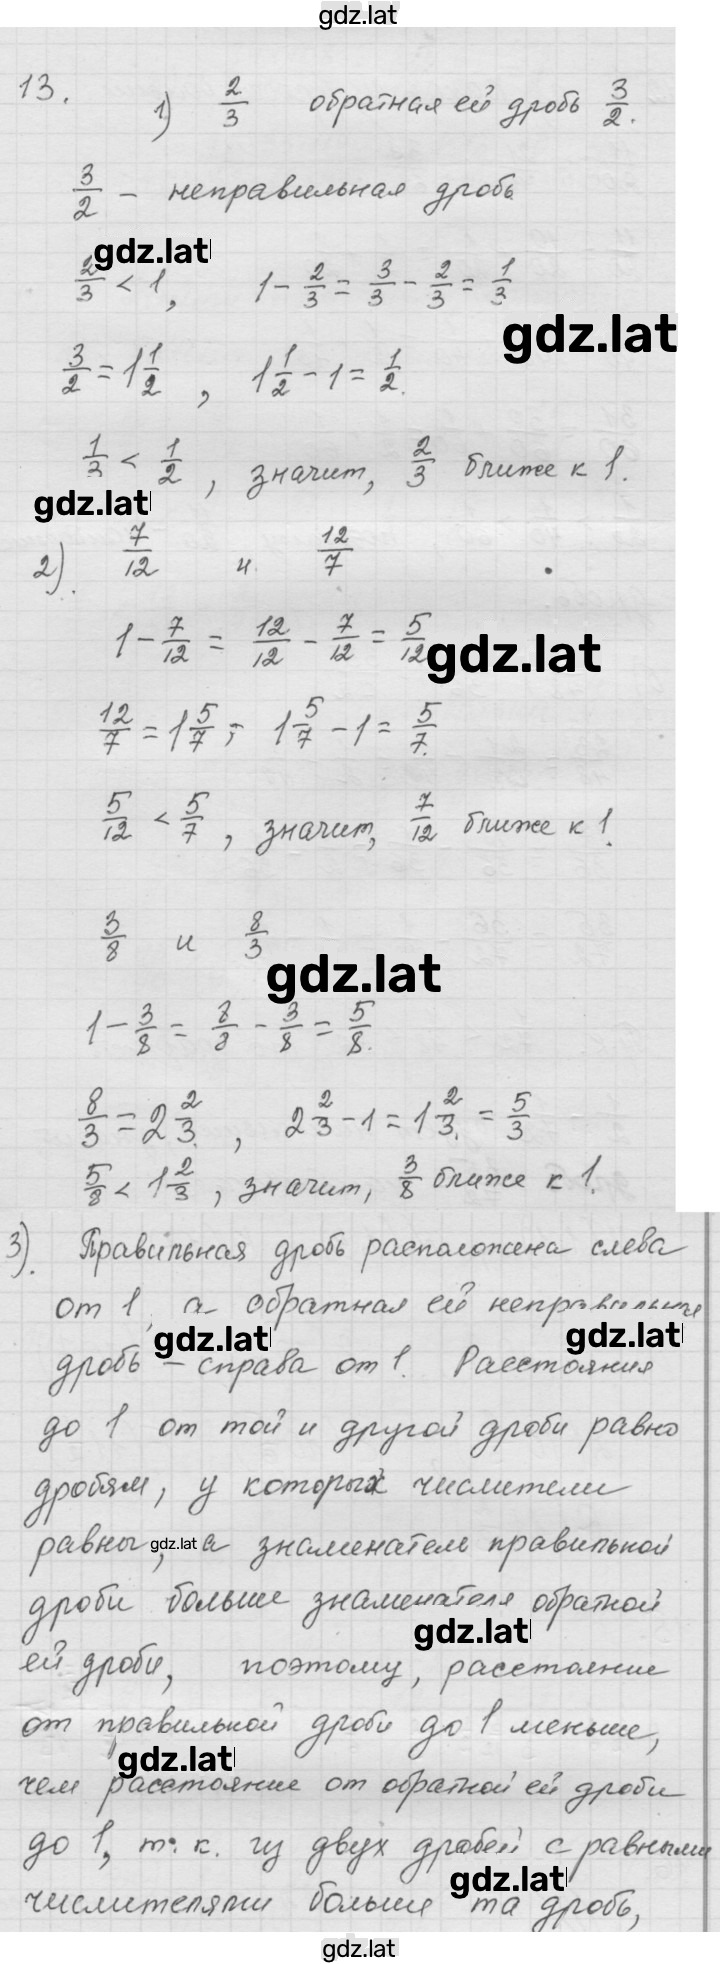 gdz.lat
13. 1) 2/3 обратная ей дробь 3/2.
3/2 – неправильная дробь
gdz.lat
2/3 < 1, 1 - 2/3 = 3/3 - 2/3 = 1/3
gdz.lat
3/2 = 1 1/2, 1 1/2 - 1 = 1/2.
1/3 < 1/2, значит, 2/3 ближе к 1.
gdz.lat
2). 7/12 и 12/7
1 - 7/12 = 12/12 - 7/12 = 5/12
gdz.lat
12/7 = 1 5/7; 1 5/7 - 1 = 5/7.
5/12 < 5/7, значит, 7/12 ближе к 1.
3/8 и 8/3
gdz.lat
1 - 3/8 = 8/8 - 3/8 = 5/8.
8/3 = 2 2/3, 2 2/3 - 1 = 1 2/3. = 5/3
5/8 < 1 2/3, значит, 3/8 ближе к 1.
3). Правильная дробь расположена слева
от 1, а обратная ей неправильная
gdz.lat gdz.lat
дробь – справа от 1. Расстояния
до 1 от той и другой дроби равно
дробям, у которых числители
равны, gdz.lat а знаменатель правильной
дроби больше знаменателя обратной
gdz.lat
ей дроби, поэтому, расстояние
от правильной дроби до 1 меньше,
gdz.lat
чем расстояние от обратной ей дроби
до 1, т. к. из двух дробей с равными
gdz.lat
числителями больше та дробь,
gdz.lat